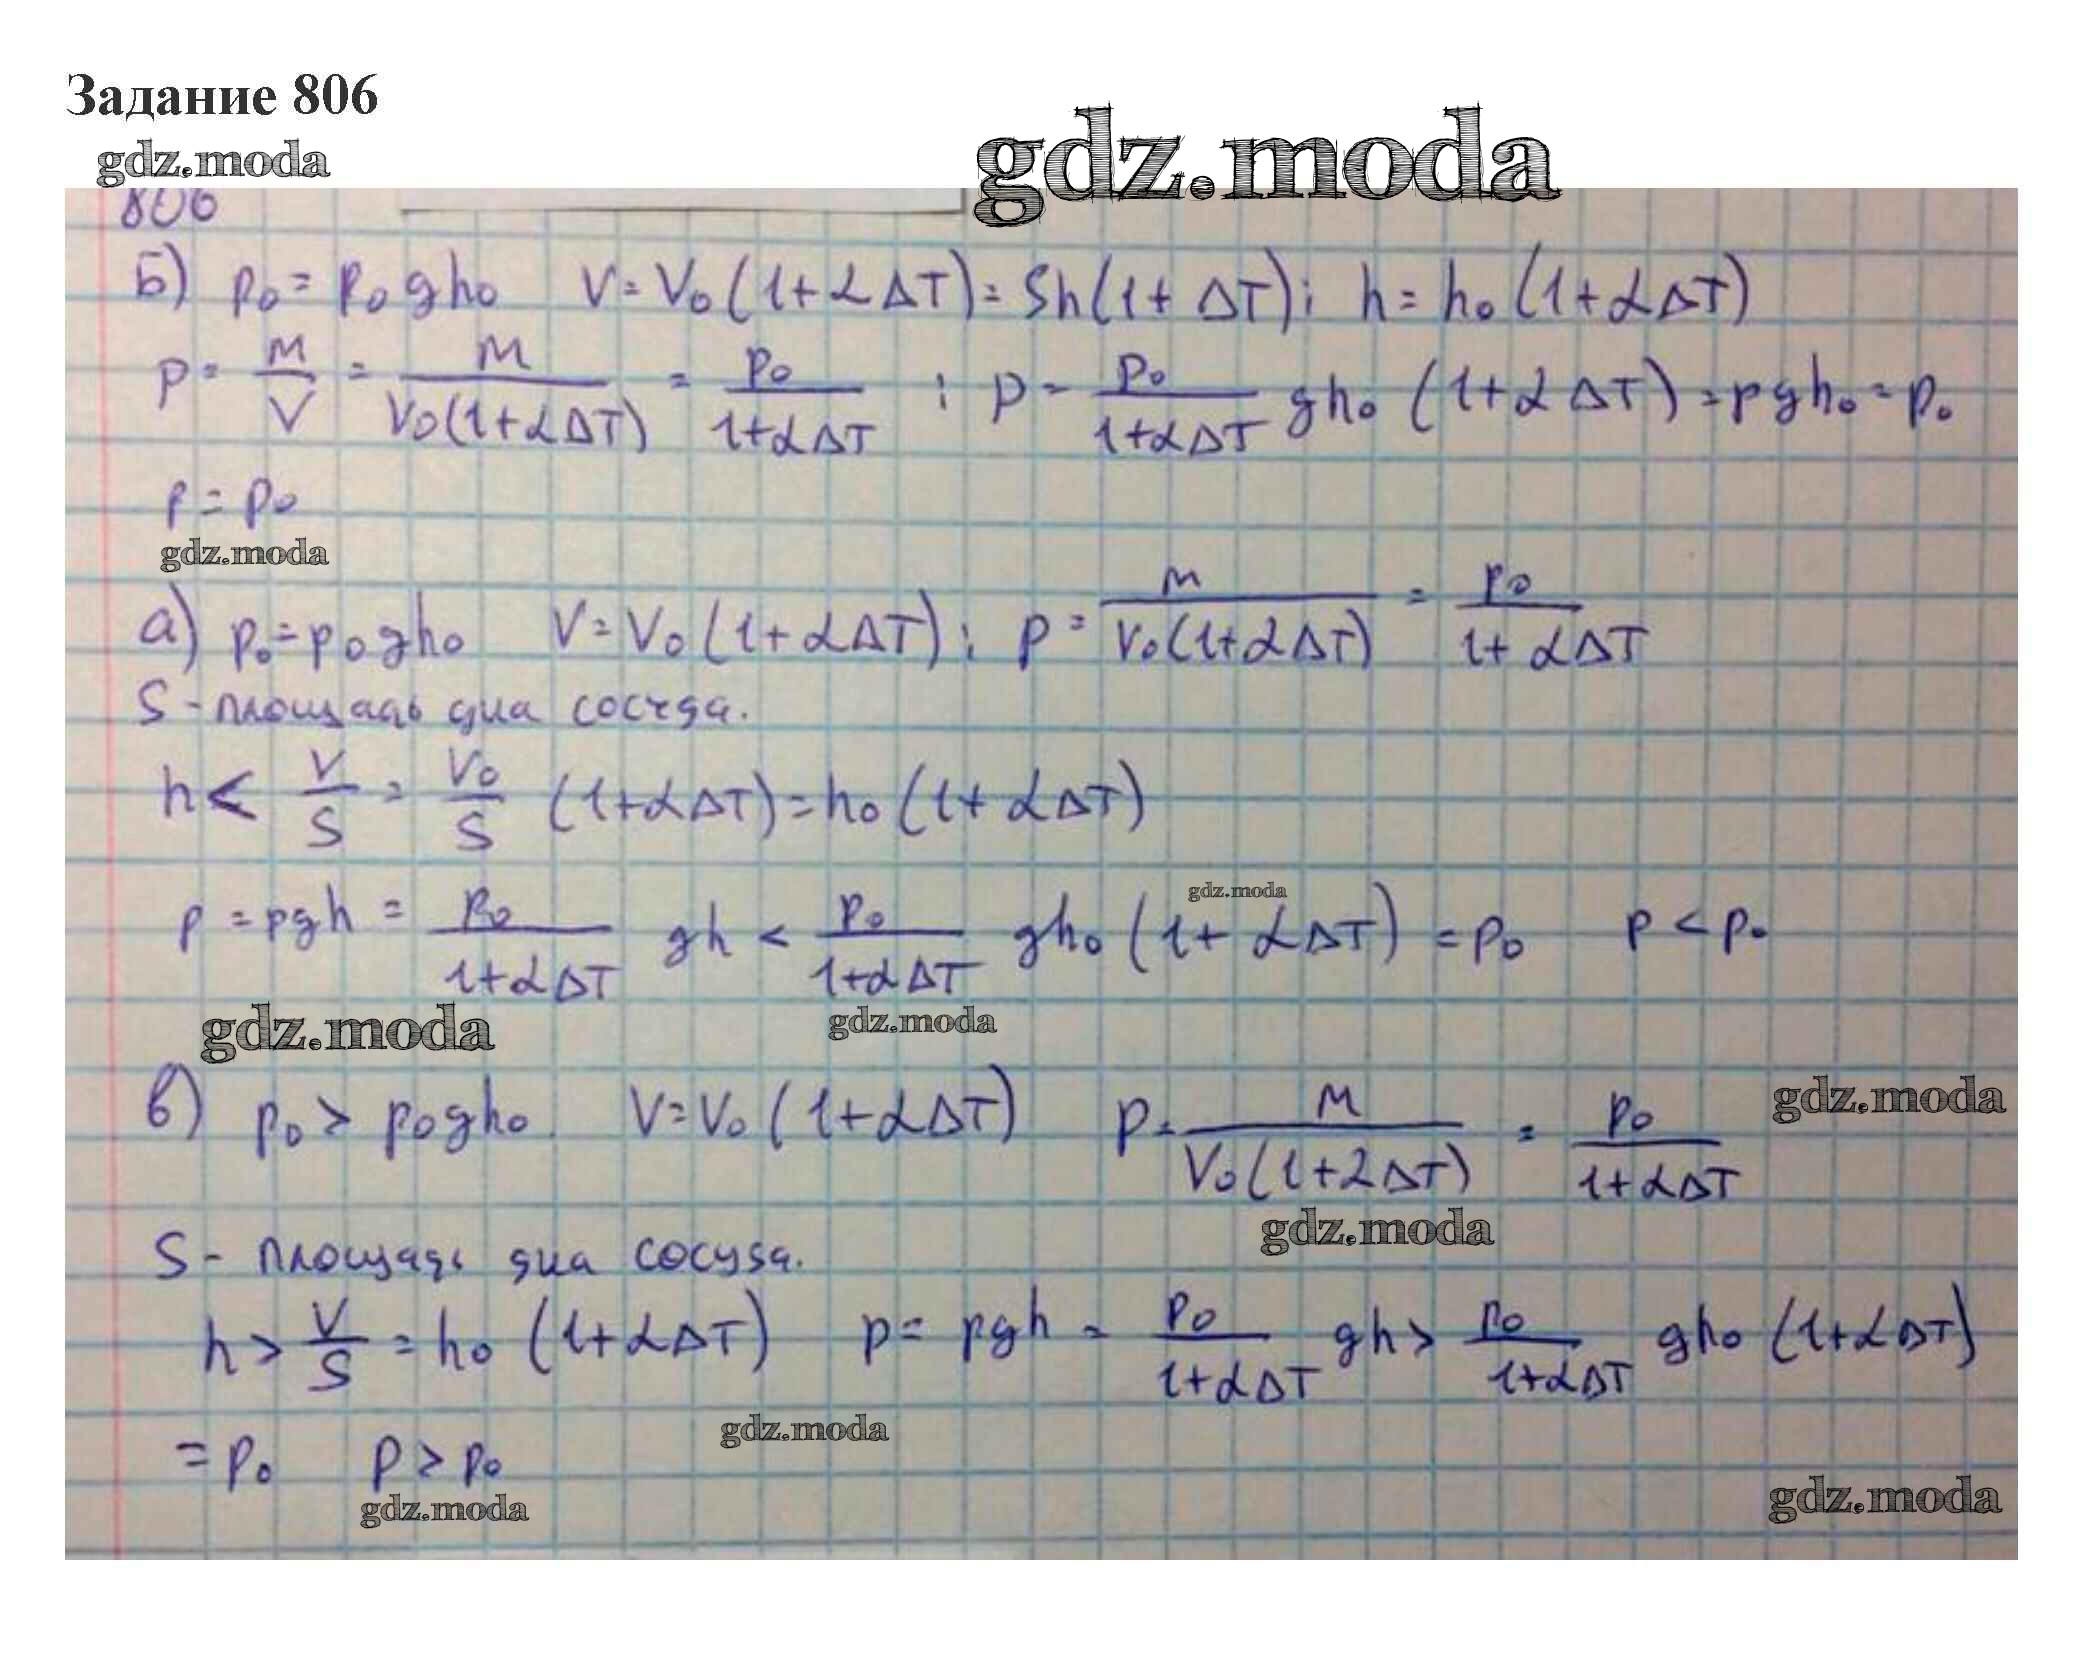 Задание 806
gdz.moda
gdz.moda
806
Б) p₀ = ρ₀gh₀ V = V₀(1+αΔT) = Sh(1+ΔT); h = h₀(1+αΔT)
ρ = m/V = m/(V₀(1+αΔT)) = ρ₀/(1+αΔT) ; p = ρ₀/(1+αΔT) gh₀ (1+αΔT) = ρgh₀ = p₀
p = p₀
gdz.moda
а) p₀ = ρ₀gh₀ V = V₀(1+αΔT); ρ = m/(V₀(1+αΔT)) = ρ₀/(1+αΔT)
S - площадь дна сосуда.
h < V/S = V₀/S (1+αΔT) = h₀(1+αΔT)
gdz.moda
p = ρgh = ρ₀/(1+αΔT) gh < ρ₀/(1+αΔT) gh₀(1+αΔT) = p₀ p < p₀
gdz.moda
gdz.moda
в) p₀ > ρ₀gh₀ V = V₀(1+αΔT) ρ = m/(V₀(1+2ΔT)) = ρ₀/(1+αΔT)
gdz.moda
gdz.moda
S - площадь дна сосуда.
h > V/S = h₀(1+αΔT) p = ρgh = ρ₀/(1+αΔT) gh > ρ₀/(1+αΔT) gh₀(1+αΔT)
gdz.moda
= p₀ p > p₀
gdz.moda
gdz.moda